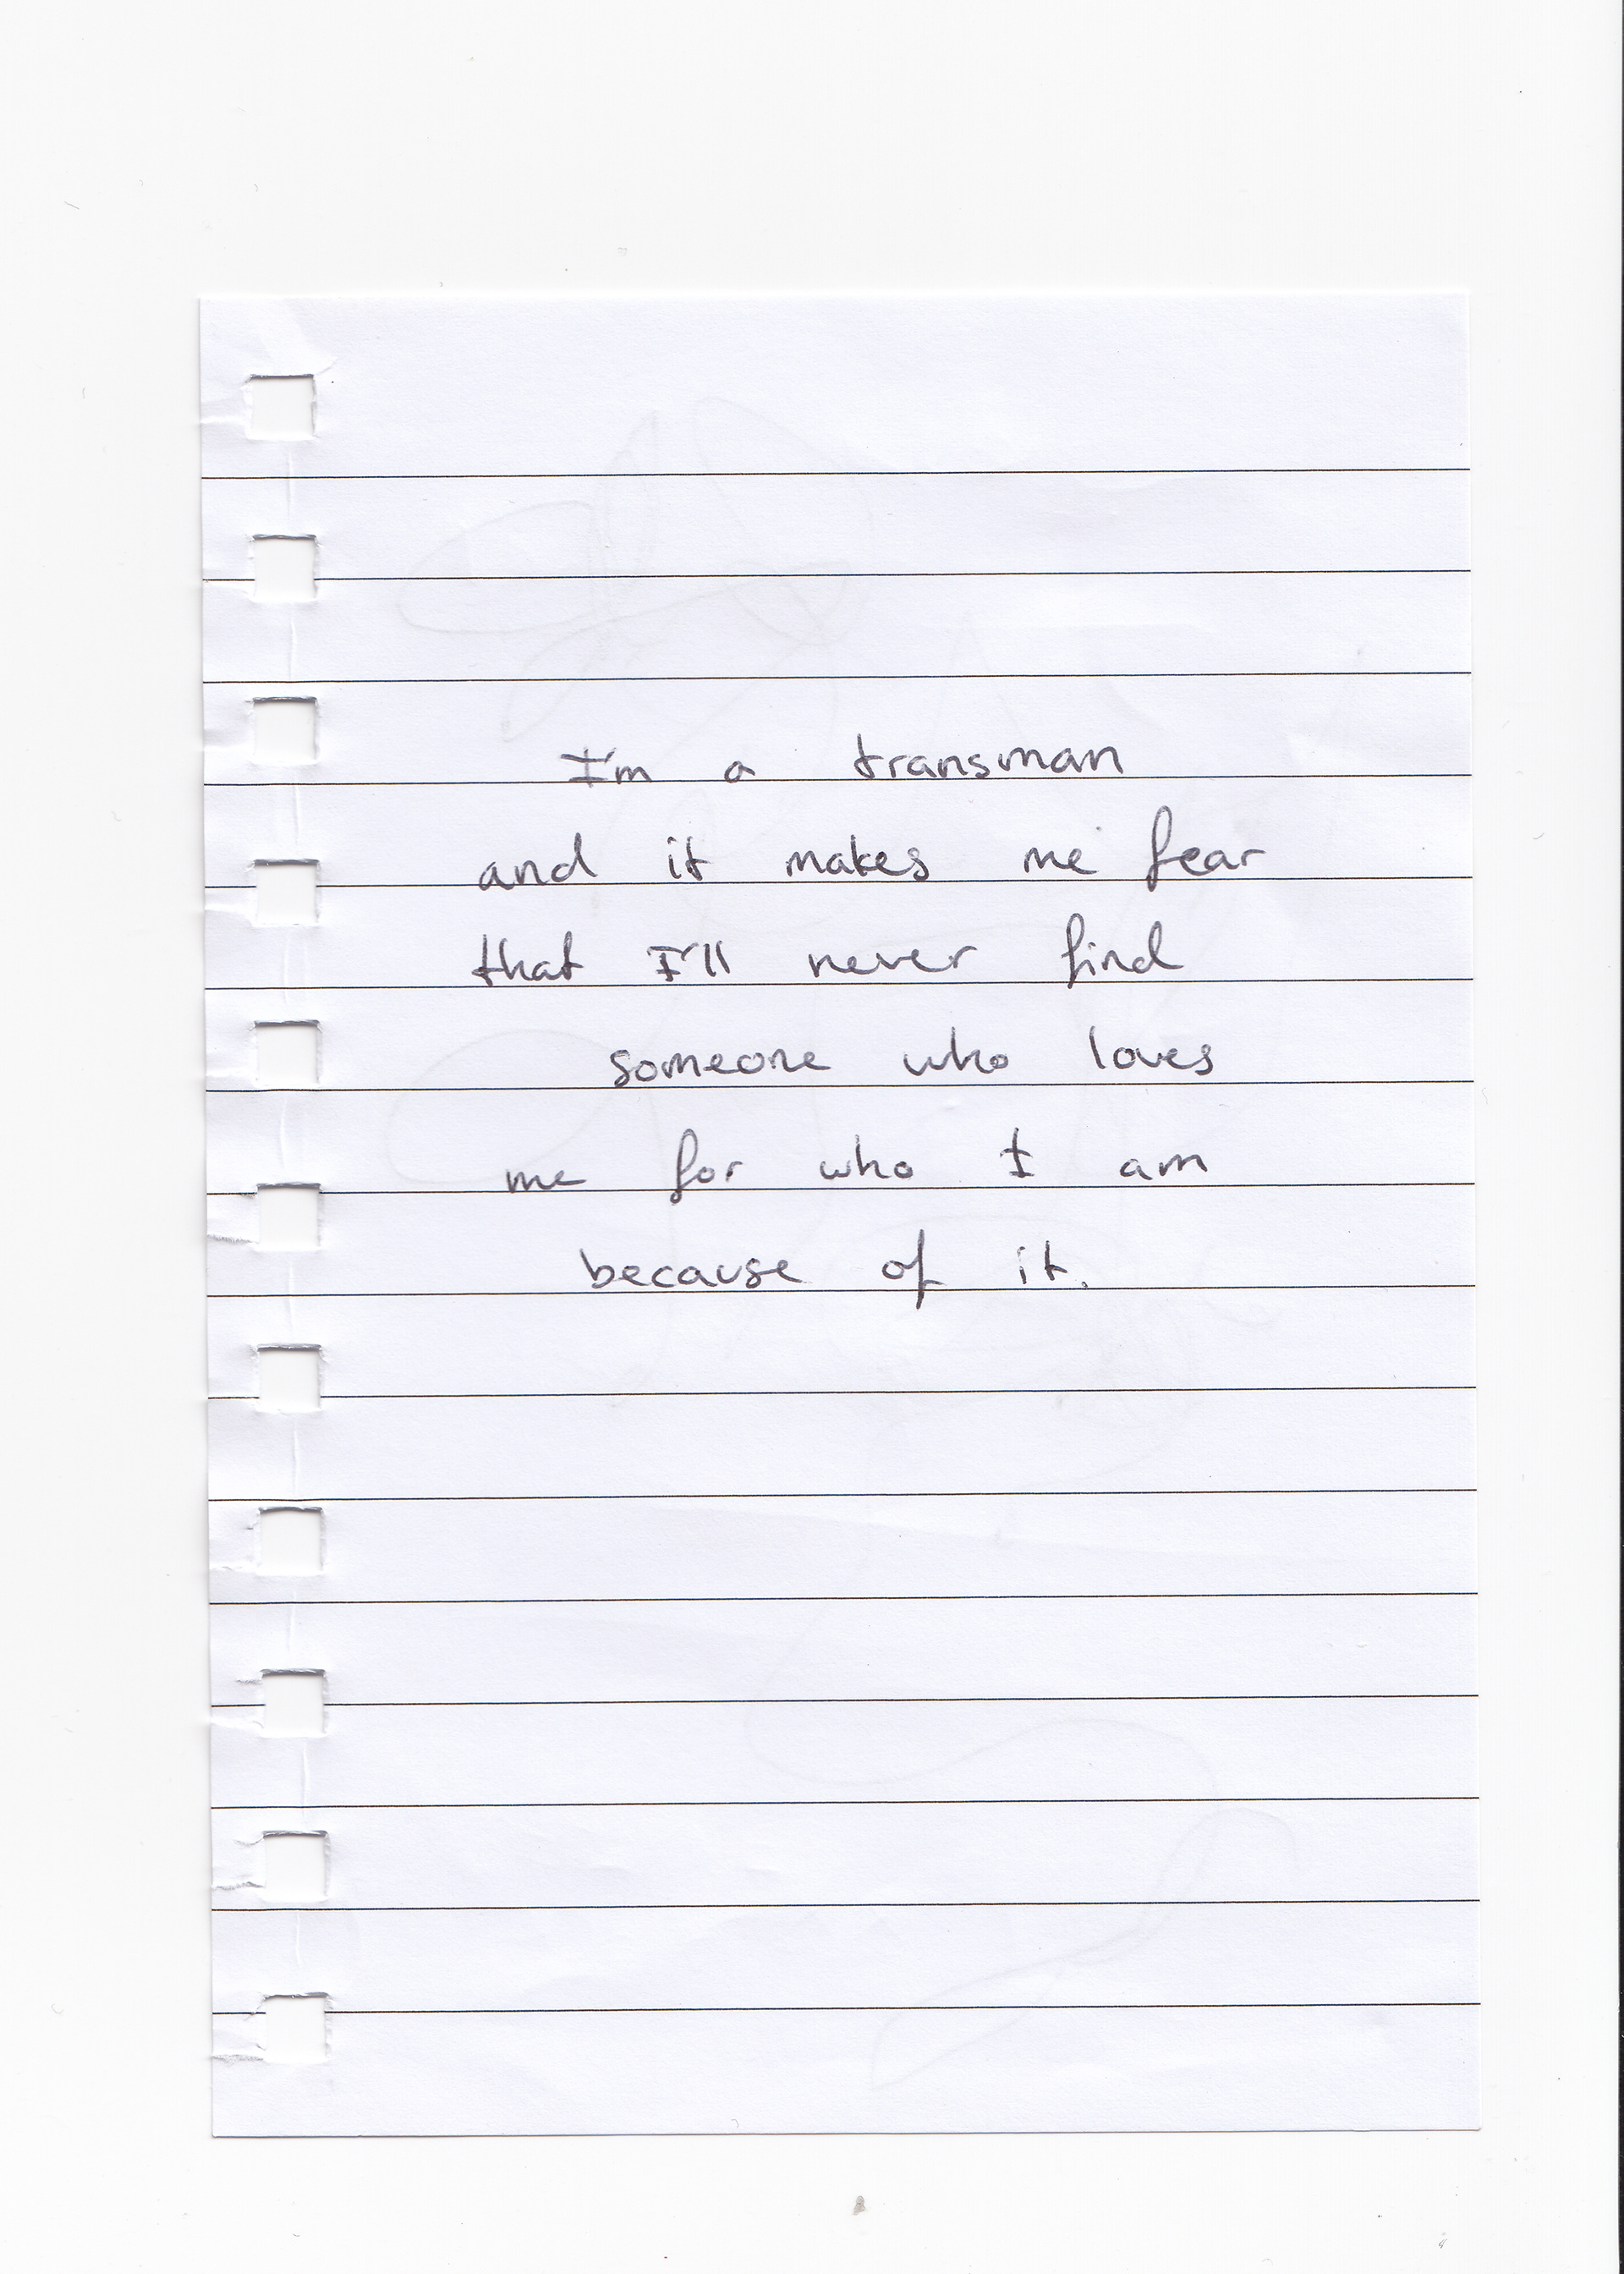 I'm a transman
and it makes me fear
that I'll never find
someone who loves
me for who I am
because of it.